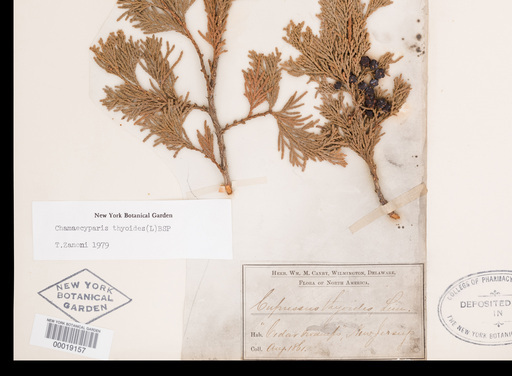 New York Botanical Garden
Chamaecyparis thyoides(L)BSP
T.Zanoni 1979
NEW YORK
BOTANICAL
GARDEN
NEW YORK BOTANICAL GARDEN
00019157
HERB. WM. M. CANBY, WILMINGTON, DELAWARE.
FLORA OF NORTH AMERICA.
Cupressus thyoides Linn.
Hab. Cedar swamps New Jersey
Coll.
COLLEGE OF PHARMACY
DEPOSITED
IN
THE NEW YORK BOTANI